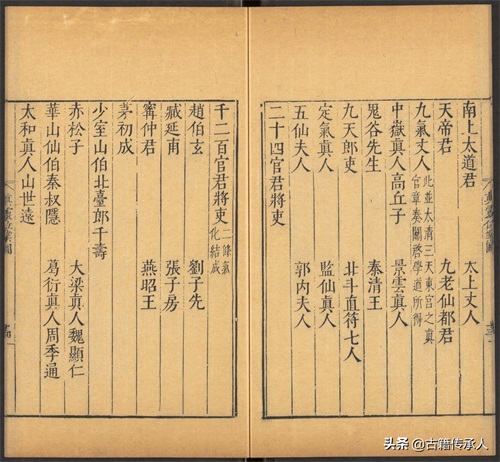 南上太道君　太上丈人
天帝君　九老仙都君
九氣丈人　此並太清三天東宮之眞官章奏關啓學道所得
中嶽眞人高丘子　景雲眞人
鬼谷先生　秦清王
九天郎吏　北斗直符七人
定氣眞人　監仙眞人
五仙夫人　郭內夫人
二十四官君將吏
千二百官君將吏　二條氣化結成
趙伯玄　劉子先
臧延甫　張子房
甯仲君　燕昭王
茅初成
少室山伯北臺郎千壽
赤松子　大梁眞人魏顯仁
華山仙伯秦叔隱　葛衍眞人周季通
太和眞人山世遠
头条 @古籍传承人